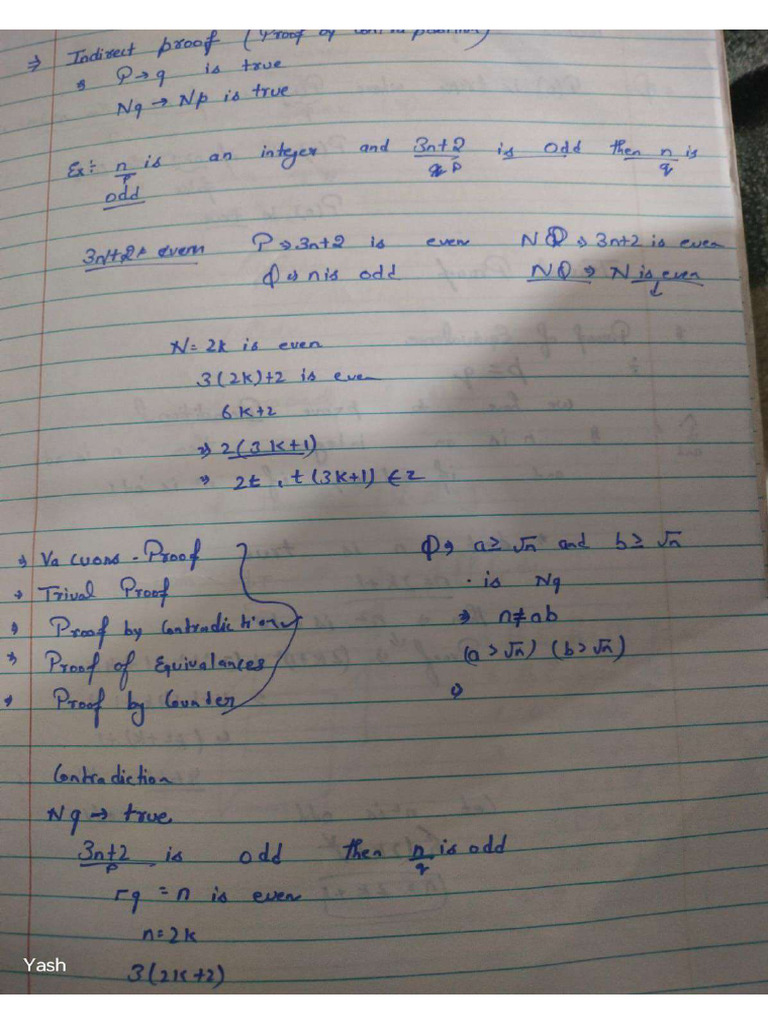 ⇒ Indirect proof (Proof by contrapositive)
⇒ P → q is true
Nq → Np is true
Ex:- n is an integer and 3n+2 is odd then n is
p p q
odd
3n+2 even P ⇒ 3n+2 is even NQ ⇒ 3n+2 is even
Q ⇒ n is odd NQ ⇒ N is even
N = 2k is even
3(2k)+2 is even
6k+2
⇒ 2(3k+1)
⇒ 2t, t(3k+1) ∈ z
→ Vacuons - Proof
→ Trival Proof
→ Proof by Contradiction
→ Proof of Equivalances
→ Proof by Counter
Q ⇒ a ≥ √n and b ≥ √n
· is Nq
⇒ n ≠ ab
(a > √n) (b > √n)
⇒
Contradiction
Nq → true
3n+2 is odd then n is odd
p q
¬q = n is even
n = 2k
3(2k+2)
Yash